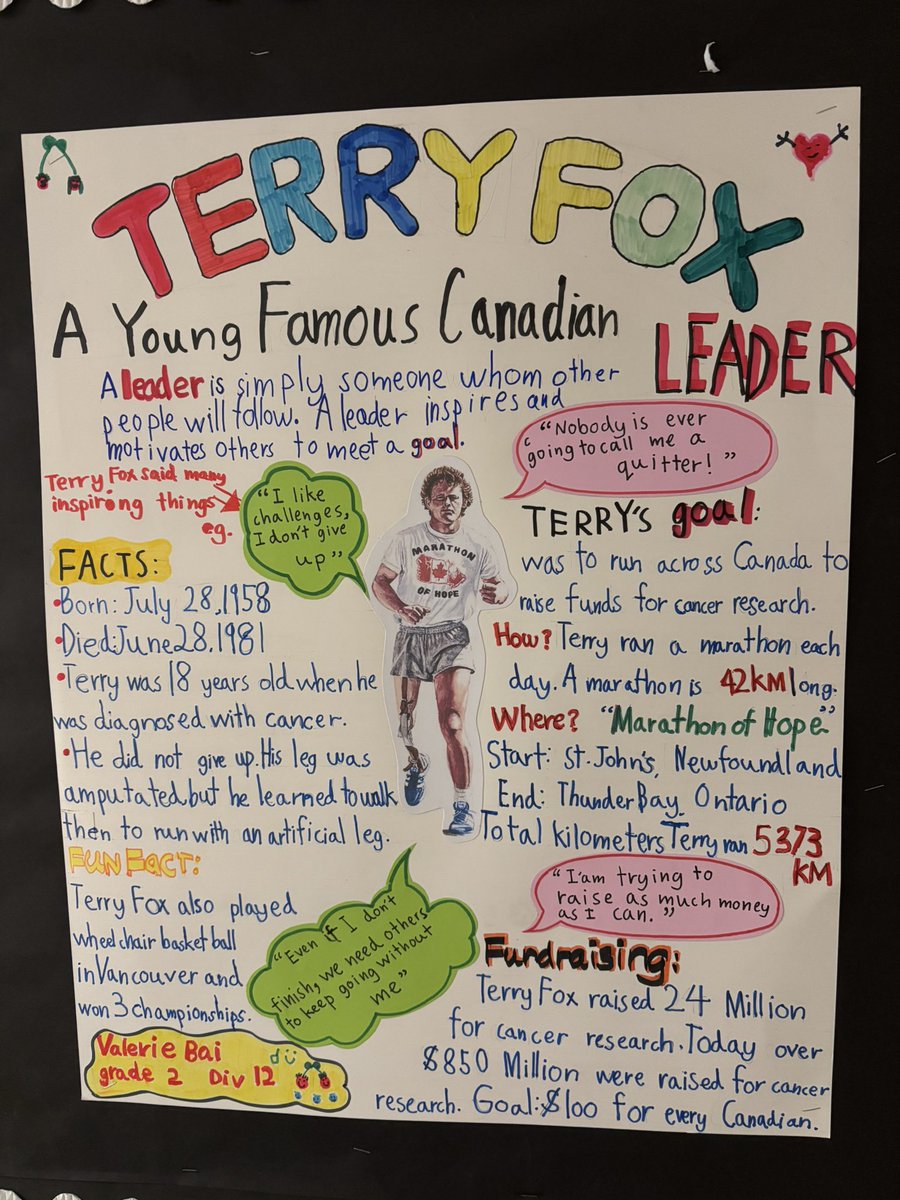 TERRY FOX
A Young Famous Canadian
LEADER
A leader is simply someone whom other
people will follow. A leader inspires and
motivates others to meet a goal.
Terry Fox said many
inspiring things
eg.
"I like
challenges,
I don't give
up"
"Nobody is ever
going to call me a
quitter!"
FACTS:
•Born: July 28, 1958
•Died: June 28, 1981
•Terry was 18 years old when he
was diagnosed with cancer.
•He did not give up. His leg was
amputated but he learned to walk
then to run with an artificial leg.
FUN FACT:
Terry Fox also played
wheel chair basket ball
in Vancouver and
won 3 championships.
Valerie Bai
grade 2 Div 12
MARATHON
OF HOPE
"Even if I don't
finish, we need others
to keep going without
me"
TERRY'S goal:
was to run across Canada to
raise funds for cancer research.
How? Terry ran a marathon each
day. A marathon is 42KM long.
Where? "Marathon of Hope"
Start: St. John's, Newfoundland
End: Thunder Bay, Ontario
Total kilometers Terry ran 5373
KM
"I'am trying to
raise as much money
as I can."
Fundraising:
Terry Fox raised 24 Million
for cancer research. Today over
$850 Million were raised for cancer
research. Goal: $100 for every Canadian.